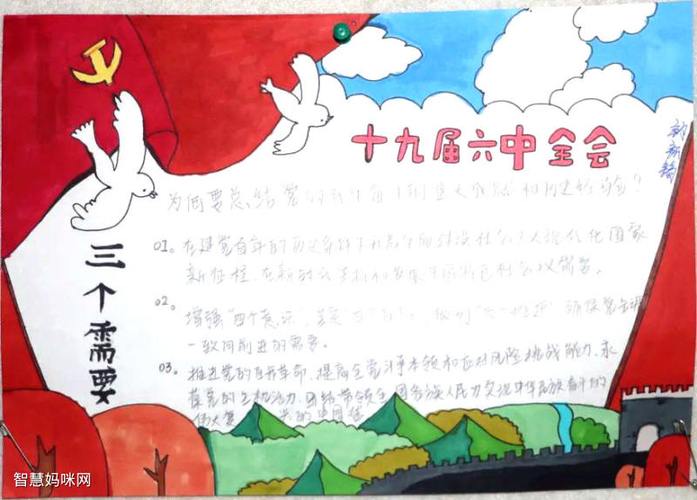 十九届六中全会
为何要总结党的百年奋斗重大成就和历史经验？
三个需要
01。在建党百年的历史条件下开启全面建设社会主义现代化国家
新征程、在新时代坚持和发展中国特色社会主义需要。
02。增强"四个意识"、
一致向前进的需要。
03。推进党的自我革命、提高全党斗争本领和应对风险挑战能力、永
葆党的生机活力、团结带领全国各族人民为实现中华民族
伟大复
智慧妈咪网